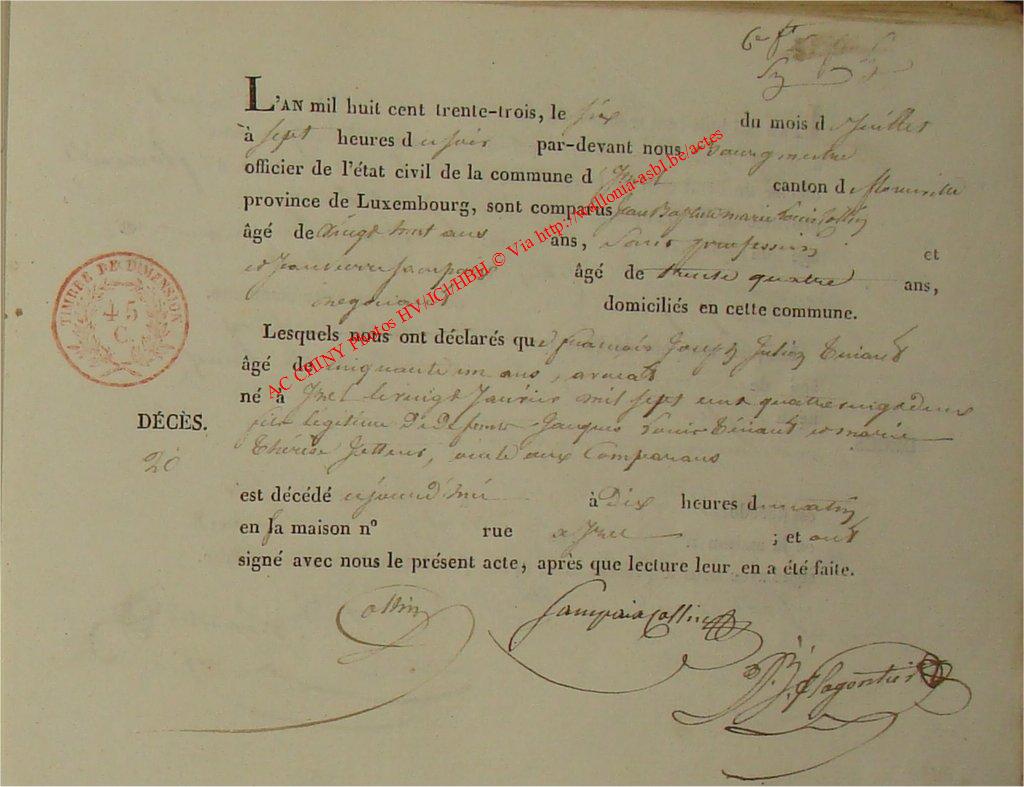 6e ft
L'AN mil huit cent trente-trois, le six du mois d Juillet
à sept heures du soir par-devant nous Bourgmestre
officier de l'état civil de la commune d' Izel canton de florenville
province de Luxembourg, sont comparus Jean Baptiste marie Louis Collin
âgé de vingt huit ans ans, sans profession et
et Jean pierre Sampaix âgé de trente quatre ans,
negociant domiciliés en cette commune.
Lesquels nous ont déclarés que francois Joseph Julien Tinant
âgé de cinquante un ans, avocat
né à Izel le vingt Janvier mil sept cent quatrevingt deux
fils légitime De Defunts Jacques Louis Tinant et marie
Thérèse Jettens, oncle aux Comparans
est décédé cejourd'hui à Dix heures du matin
en sa maison n° rue a Izel ; et ont
signé avec nous le présent acte, après que lecture leur en a été faite.
DÉCÈS.
20
TIMBRE DE DIMENSION
45
C.
Collin
Sampaix Collin
AC CHINY Photos HV/JCl/HBH © Via http://wallonia-asbl.be/actes